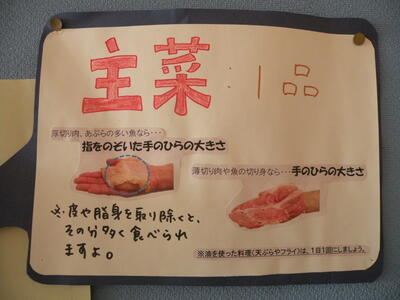 主菜 : 一品
厚切り肉、あぶらの多い魚なら・・・
指をのぞいた手のひらの大きさ
薄切り肉や魚の切り身なら・・・手のひらの大きさ
※皮や脂身を取り除くと、
その分多く食べられ
ますよ。
※油を使った料理(天ぷらやフライ)は、1日1回にしましょう。